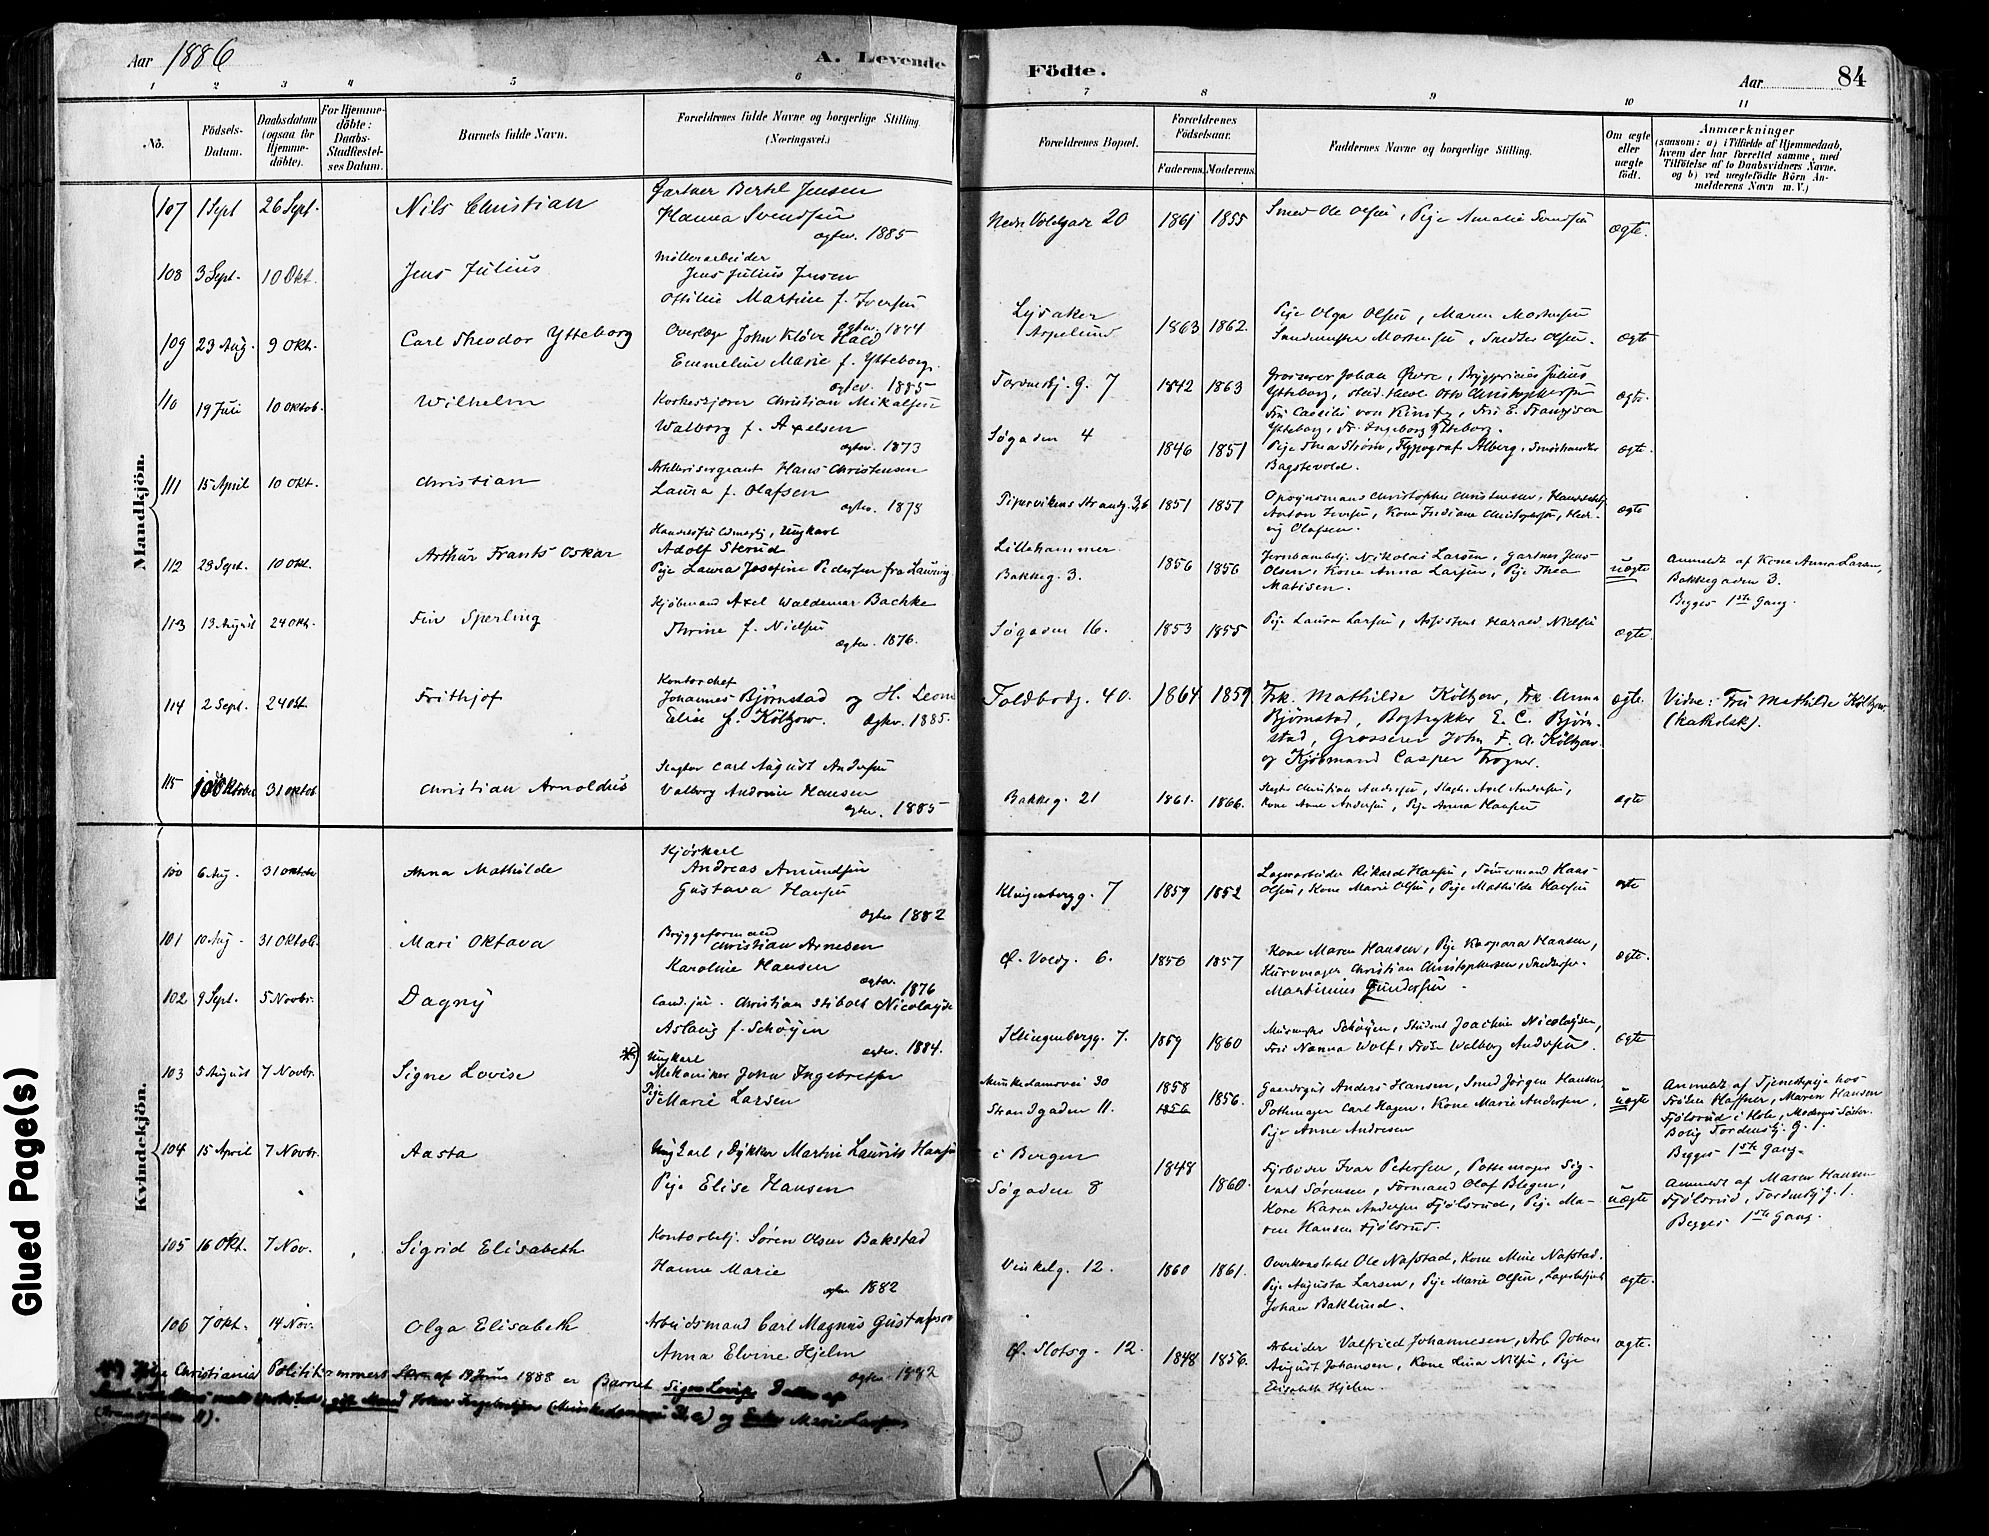 Aar 1886
A. Levende
Födte.
Aar
84
1 2 3 4 5 6 7 8 9 10 11
No.
Födsels-
Datum.
Daabsdatum
(ogsaa for
Hjemme-
döbte).
For Hjemme-
döbte:
Daabs-
Stadfæstel-
ses Datum.
Barnets fulde Navn.
Forældrenes fulde Navne og borgerlige Stilling
(Næringsvei.)
Forældrenes Bopæl.
Forældrenes
Födselsaar.
Faderens. Moderens.
Faddernes Navne og borgerlige Stilling.
Om ægte
eller
uægte
født.
Anmærkninger
(saasom: a) i Tilfælde af Hjemmedaab,
hvem der har forrettet samme, med
Tilföielse af to Daabsvidners Navne.
og b) ved uægtefödte Börn An-
melderens Navn m. V.)
Mandkjön.
107 1 Sept 26 Sept. Nils Christian
Gartner Bertel Jensen
Hanna Svendsen
ægtev. 1885
Nedre Voldgade 20 1861 1855
Smed Ole Olsen, Pige Amalie Svendsen
ægte.
108 3 Sept. 10 Okt. Jens Julius
Møllerarbeider
Jens Julius Jensen
Ottilie Martine f. Iversen
ægtev. 1844
Lysaker
Aspelund
1863 1862.
Pige Olga Olsen, Maren Mortensen
Mortensen, Olsen.
ægte
109 23 Aug. 9 Okt. Carl Theodor Ytteborg
Overlæge John Kløve Hald
Emmeline Marie f. Ytteborg.
ægtev. 1885
Tordenskj. g. 7 1842 1863
Grosserer Johan Øvre, Julius
Ytteborg, stud. theol. Otto Christophersen
Fru Cæcilie von Fru E. Franziska
Ytteborg, Fr. Ingeborg Ytteborg.
ægte.
110 19 Juli 10 Oktob. Wilhelm
Korkeskjærer Christian Mikalsen
Walborg f. Axelsen
ægtev. 1873
Søgaden 4 1846 1851
Pige Thea Strøm, Typograf Alberg, Smørhandler
Bagstevold.
ægte.
111 15 April 10 Okt. Christian
Artillerisergeant Hans Christensen
Laura f. Olafsen
ægtev. 1873
Pipervikens Strandg. 3,6 1851 1851
Opsynsmand Christopher Christensen,
Anton Iversen, Kone Indiane Christophersen, Hed-
vig Olafsen.
ægte
112 23 Sept. 10 Okt. Arthur Frants Oskar
Ungkarl
Adolf Sterud
Pige Laura Josefine Pedersen fra Laurvig
Lillehammer
Bakkeg. 3.
1856 1856
Jernbanebetj. Nikolai Larsen, Gartner Jens
Olsen, Kone Anna Larsen, Pige Thea
Matisen.
uægte
Anmeldt af Kone Anna Larsen,
Bakkegaden 3.
Begges 1ste Gang.
113 13 August 24 Okt. Fin Sperling
Kjøbmand Axel Waldemar Bachke
Thrine f. Nielsen
ægtev. 1876.
Søgaden 16. 1853 1855
Pige Laura Larsen, Assistent Harald Nielsen
ægte.
114 2 Sept. 24 Okt. Frithjof
Kontorchef
Johannes Bjørnstad og H. Leoni
Elise f. Költzow. Ægtev. 1885.
Toldbodg. 40. 1864 1859
Frk. Mathilde Költzow, Frk. Anna
Bjørnstad, Bogtrykker E. C. Bjørn-
stad, Grosserer John F. A. Költzow
og Kjøbmand Casper Trogner.
ægte.
Vidne: Frk Mathilde Költzow
(katholsk).
115 10 Oktober 31 Oktob Christian Arnoldus
Slagter Carl August Andersen
Valborg Andrine Hansen
ægtev. 1885
Bakkeg. 21 1861. 1866.
Slagter Christian Andersen, Slagt. Axel Andersen,
Kone Anne Andersen, Pige Anna Hansen
ægte
Kvindekjön.
100 6 Aug. 31 Oktober Anna Mathilde
Kjørkarl
Andreas Amundsen
Gustava Hansen
ægtev 1882
Klingenbergg. 7 1859 1852
Lagerarbeider Rikard Hansen, Tømmermand Hans
Olsen, Kone Marie Olsen, Pige Mathilde Hansen
ægte
101 10 Aug. 31 Oktob. Mari Oktava
Bryggeformand
Christian Arnesen
Karoline Hansen
ægtev. 1876
Ø. Voldg. 6. 1850 1857
Kone Maren Hansen, Pige Kaspara Hansen,
Kurvmager Christian Christophersen,
Martinius Gundersen.
ægte.
102 9 Sept. 5 Novbr. Dagny
Cand. jur. Christian Stibolt Nicolaysen
Aslaug f. Schøyen
ægtev. 1884.
Klingenbergg. 7. 1859 1860
Murmester Schøyen, Student Joachim Nicolaysen,
Fru Nanna Wolf, Frøken Walborg Andersen.
ægte
103 5 August 7 Novbr. Signe Lovise
*)
Ungkarl
Mekaniker John Ingebretsen
Pige
Marie Larsen
Munkedamsvei 30
Strandgaden 11.
1858
1856
1856.
Gaardsgut Anders Hansen, Smed Jørgen Hansen,
Pottemager Carl Hagen, Kone Marie Andersen,
Pige Anne Andresen
uægte
Anmeldt af Tjenestpige hos
Frøken Haffner, Maren Hansen
Fjölsrud i Hole, Moderens Søster.
Bolig Tordenskj. g. 1.
Begges 1ste Gang.
104 15 April 7 Novbr. Aasta
Ungkarl, Dykker Martin Laurits Hansen
Pige Elise Hansen
i Bergen
Søgaden 8
1848
1860.
Fyrbøder Ivar Petersen, Pottemager Sig-
vart Sørensen, Formand Olaf Blegen,
Kone Karen Andersen Fjölsrud, Pige Ma-
ren Hansen Fjölsrud.
uægte
Anmeldt af Maren Hansen
Fjölsrud, Tordenskj. g. 1.
Begges 1ste Gang.
105 16 Okt. 7 Nov. Sigrid Elisabeth
Kontorbetj. Søren Olsen Bakstad
Hanne Marie
ægtev 1882
Vinkelg. 12. 1860 1861.
Overkonstabel Ole Nafstad, Kone Mine Nafstad.
Pige Augusta Larsen, Pige Marie Olsen,
Johan Baklund.
ægte.
106 7 Okt. 14 Nov. Olga Elisabeth
Arbeidsmand Carl Magnus Gustafsson
Anna Elvine Hjelm
ægtev. 1882
Ø. Slotsg. 12. 1848 1856.
Arbeider Valfried Johannesen, Arb. Johan
August Johansen, Kone Lina Nilsen, Pige
Elisabeth Hjelm.
ægte.
*) Ifølge Christiania Politikammers af 19 Juni 1888 er Barnet Signe Lovise Datter af
gift Mand John Ingebretsen (Munkedamsvei 30) og Marie Larsen
(Strandgaden 11).
Glued Page(s)